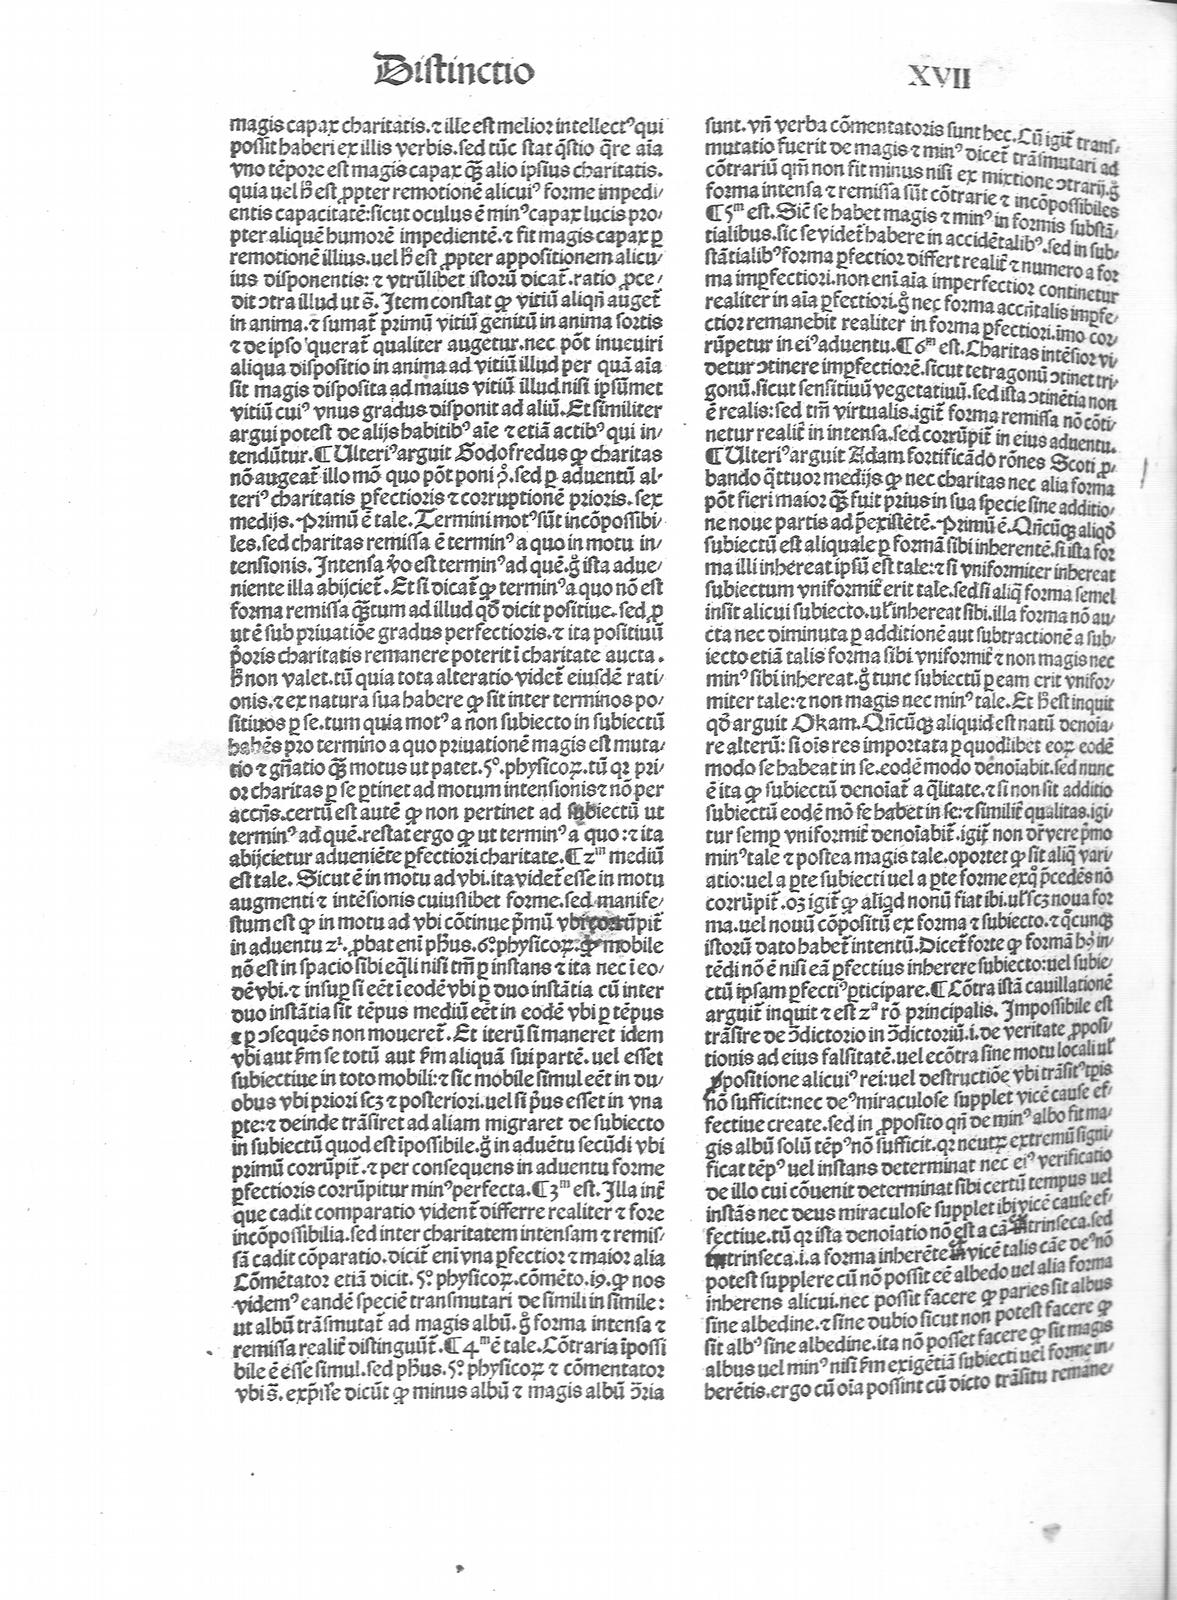 Distinctio
XVII
magis capax charitatis. ⁊ ille est melior intellectꝰ qui
possit haberi ex illis verbis. sed tūc stat q̄stio q̄re aīa
vno tēpore est magis capax q̄ꝫ alio ipsius charitatis.
quia uel h̄ est ꝓpter remotionē alicuiꝰ forme impedi⸗
entis capacitatē: sicut oculus ē minꝰ capax lucis pro⸗
pter aliquē humorē impedientē. ⁊ fit magis capax ꝑ
remotionē illius. uel h̄ est ꝓpter appositionem alicu⸗
ius disponentis: ⁊ vtrūlibet istorū dicat̄. ratio ꝓce⸗
dit ↄtra illud ut s̄. Item constat ꝙ vitiū aliqn̄ auget̄
in anima. ⁊ sumat̄ primū vitiū genitū in anima sortis
⁊ de ipso querat̄ qualiter augetur. nec pōt inueuiri
aliqua dispositio in anima ad vitiū illud per quā aīa
sit magis disposita ad maius vitiū illud nisi ipsūmet
vitiū cuiꝰ vnus gradus disponit ad aliū. Et similiter
argui potest de alijs habitibꝰ aīe ⁊ etiā actibꝰ qui in⸗
tendūtur. ¶ Ulteriꝰ arguit Godofredus ꝙ charitas
nō augeat̄ illo mō quo pōt poni ꝯ̄. sed ꝑ aduentū al⸗
teriꝰ charitatis ꝑfectioris ⁊ corruptionē prioris. sex
medijs. Primū ē tale. Termini motꝰ sūt incōpossibi⸗
les. sed charitas remissa ē terminꝰ a quo in motu in⸗
tensionis. Intensa v̊o est terminꝰ ad quē. g̊ ista adue⸗
niente illa abijciet̄. Et si dicat̄ ꝙ terminꝰ a quo nō est
forma remissa q̄ꝫtum ad illud qd̄ dicit positiue. sed ꝓ
ut ē sub priuatiōe gradus perfectioris. ⁊ ita positiuū
p̄oris charitatis remanere poterit ī charitate aucta.
h̄ non valet. tū quia tota alteratio videt̄ eiusdē rati⸗
onis. ⁊ ex natura sua habere ꝙ sit inter terminos po⸗
sitiuos ꝑ se. tum quia motꝰ a non subiecto in subiectū
habēs pro termino a quo priuationē magis est muta⸗
tio ⁊ gn̄atio q̄ꝫ motus ut patet. 5º. physicoꝝ. tū qꝛ pri⸗
or charitas ꝑ se ꝑtinet ad motum intensionis ⁊ nō per
accn̄s. certū est autē ꝙ non pertinet ad subiectū ut
terminꝰ ad quē. restat ergo ꝙ ut terminꝰ a quo: ⁊ ita
abijcietur adueniēte ꝑfectiori charitate. ¶ 2ᵐ mediū
est tale. Sicut ē in motu ad vbi. ita videt̄ esse in motu
augmenti ⁊ intēsionis cuiuslibet forme. sed manife⸗
stum est ꝙ in motu ad vbi cōtinue p̄mū vbi corrūpit̄
in aduentu 2ⁱ. ꝓbat enī ph̄us. 6º. physicoꝝ. ꝙ mobile
nō est in spacio sibi eq̄li nisi tm̄ ꝑ instans ⁊ ita nec ī eo⸗
dē vbi. ⁊ insuꝑ si eēt ī eodē vbi ꝑ duo instātia cū inter
duo instātia sit tēpus mediū eēt in eodē vbi ꝑ tēpus
⁊ ꝑ ↄsequēs non moueret̄. Et iterū si maneret idem
vbi aut ẜm se totū aut ẜm aliquā sui partē. uel esset
subiectiue in toto mobili: ⁊ sic mobile simul eēt in du⸗
obus vbi priori scꝫ ⁊ posteriori. uel si p̄us esset in vna
ꝑte: ⁊ deinde trāsiret ad aliam migraret de subiecto
in subiectū quod est īpossibile. g̊ in aduētu secūdi vbi
primū corrūpit̄. ⁊ per consequens in aduentu forme
ꝑfectioris corrūpitur minꝰ perfecta. ¶ 3ᵐ est. Illa int̄
que cadit comparatio vident̄ differre realiter ⁊ fore
incōpossibilia. sed inter charitatem intensam ⁊ remis⸗
sā cadit cōparatio. dicit̄ enī vna ꝑfectior ⁊ maior alia
Cōmētator etiā dicit. 5º. physicoꝝ. cōmēto. 19. ꝙ nos
videmꝰ eandē speciē transmutari de simili in simile:
ut albū trāsmutat̄ ad magis albū. g̊ forma intensa ⁊
remissa realit̄ distinguūt̄. ¶ 4ᵐ ē tale. Cōtraria īpossi
bile ē esse simul. sed ph̄us. 5º. physicoꝝ ⁊ cōmentator
vbi s̄. exp̄sse dicūt ꝙ minus albū ⁊ magis albū ↄ̄ria
sunt. vn̄ verba cōmentatoris sunt hec. Cū igit̄ trans⸗
mutatio fuerit de magis ⁊ minꝰ dicet̄ trāsmutari ad
cōtrariū qm̄ non fit minus nisi ex mixtione ↄtrarij. g̊
forma intensa ⁊ remissa sūt cōtrarie ⁊ incōpossibiles
¶ 5ᵐ est. Sic̄ se habet magis ⁊ minꝰ in formis substā⸗
tialibus. sic se videt̄ habere in accidētalibꝰ. sed in sub⸗
stātialibꝰ forma ꝑfectior differt realit̄ ⁊ numero a for
ma imꝑfectiori. non enī aīa imperfectior continetur
realiter in aīa ꝑfectiori. g̊ nec forma accn̄talis imꝑfe⸗
ctior remanebit realiter in forma ꝑfectiori. imo cor⸗
rūpetur in eiꝰ aduentu. ¶ 6ᵐ est. Charitas intēsior vi
detur ↄtinere imꝑfectiorē. sicut tetragonū ↄtinet tri⸗
gonū. sicut sensitiuū vegetatiuū. sed ista ↄtinētia non
ē realis: sed tm̄ virtualis. igit̄ forma remissa nō cōti⸗
netur realit̄ in intensa. sed corrūpit̄ in eius aduentu.
¶ Ulteriꝰ arguit Adam fortificādo rōnes Scoti ꝓ⸗
bando q̄ttuor medijs ꝙ nec charitas nec alia forma
pōt fieri maior q̄ꝫ fuit prius in sua specie sine additio⸗
ne noue partis ad p̄existētē. Primū ē. Qn̄cūqꝫ aliqd̄
subiectū est aliquale ꝑ formā sibi inherentē. si ista for
ma illi inhereat ipsū est tale: ⁊ si vniformiter inhereat
subiectum vniformit̄ erit tale. sed si aliq̄ forma semel
insit alicui subiecto. ul̄ inhereat sibi. illa forma nō au⸗
cta nec diminuta ꝑ additionē aut subtractionē a sub⸗
iecto etiā talis forma sibi vniformit̄ ⁊ non magis nec
minꝰ sibi inhereat. g̊ tunc subiectū ꝑ eam erit vnifor⸗
miter tale: ⁊ non magis nec minꝰ tale. Et h̄ est inquit
qd̄ arguit Okam. Qn̄cūqꝫ aliquid est natū denoīa⸗
re alterū: si oīs res importata ꝑ quodlibet eoꝝ eodē
modo se habeat in se. eodē modo denoīabit. sed nunc
ē ita ꝙ subiectū denoīat̄ a q̄litate. ⁊ si non sit additio
subiectū eodē mō se habet in se: ⁊ similit̄ qualitas. igi⸗
tur semꝑ vniformit̄ denoīabit̄. igit̄ non dr̄ vere p̄mo
minꝰ tale ⁊ postea magis tale. oportet ꝙ sit aliq̄ vari⸗
atio: uel a ꝑte subiecti uel a ꝑte forme ex q̄ p̄cedēs nō
corrūpit̄. oꝫ igit̄ ꝙ aliqd nouū fiat ibi. ul̄ scꝫ noua for
ma. uel nouū cōpositū ex forma ⁊ subiecto. ⁊ q̄cunqꝫ
istorū dato habet̄ intentū. Dicet̄ forte ꝙ formā hꝰ in⸗
tēdi nō ē nisi eā ꝑfectius inherere subiecto: uel subie⸗
ctū ipsam ꝑfectiꝰ ꝑticipare. ¶ Cōtra istā cauillationē
arguit̄ inquit ⁊ est 2ᵃ rō principalis. Impossibile est
trāsire de ↄ̄dictorio in ↄ̄dictoriū. i. de veritate ꝓposi⸗
tionis ad eius falsitatē. uel ecōtra sine motu locali ul̄
ꝓpositione alicuiꝰ rei: uel destructiōe vbi trāsitꝰ tꝑis
nō sufficit: nec deꝰ miraculose supplet vicē cause ef⸗
fectiue create. sed in ꝓposito qn̄ de minꝰ albo fit ma⸗
gis albū solū tēpꝰ nō sufficit. qꝛ neutꝝ extremū signi⸗
ficat tēpꝰ uel instans determinat nec eiꝰ verificatio
de illo cui cōuenit determinat sibi certū tempus uel
instās nec deus miraculose supplet ibi vicē cause ef⸗
fectiue. tū qꝛ ista denoīatio nō est a cā trinseca. sed
intrinseca. i. a forma inherēte vicē talis cāe deꝰ nō
potest supplere cū nō possit eē albedo uel alia forma
inherens alicui. nec possit facere ꝙ paries sit albus
sine albedine. ⁊ sine dubio sicut non potest facere ꝙ
sit albꝰ sine albedine. ita nō posset facere ꝙ sit magis
albus uel minꝰ nisi ẜm exigētiā subiecti uel forme in⸗
herētis. ergo cū oīa possint cū dicto trāsitu remane⸗